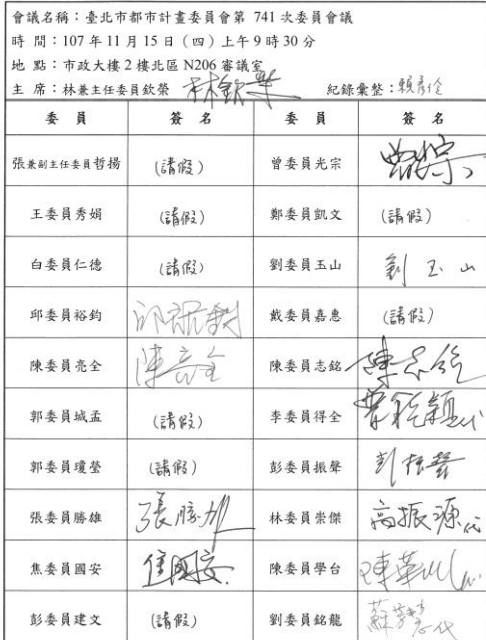 會議名稱：臺北市都市計畫委員會第 741 次委員會議
時 間：107 年 11 月 15 日（四）上午 9 時 30 分
地 點：市政大樓 2 樓北區 N206 審議室
主 席：林兼主任委員欽榮 林欽榮 紀錄彙整：賴彥伶
委 員 簽 名 委 員 簽 名
張兼副主任委員哲揚 (請假) 曾委員光宗
王委員秀娟 (請假) 鄭委員凱文 (請假)
白委員仁德 (請假) 劉委員玉山 劉玉山
邱委員裕鈞 邱裕鈞 戴委員嘉惠 (請假)
陳委員亮全 陳亮全 陳委員志銘 陳志銘
郭委員城孟 (請假) 李委員得全 代
郭委員瓊瑩 (請假) 彭委員振聲 彭振聲
張委員勝雄 張勝雄 林委員崇傑 高振源代
焦委員國安 焦國安 陳委員學台 代
彭委員建文 (請假) 劉委員銘龍 代